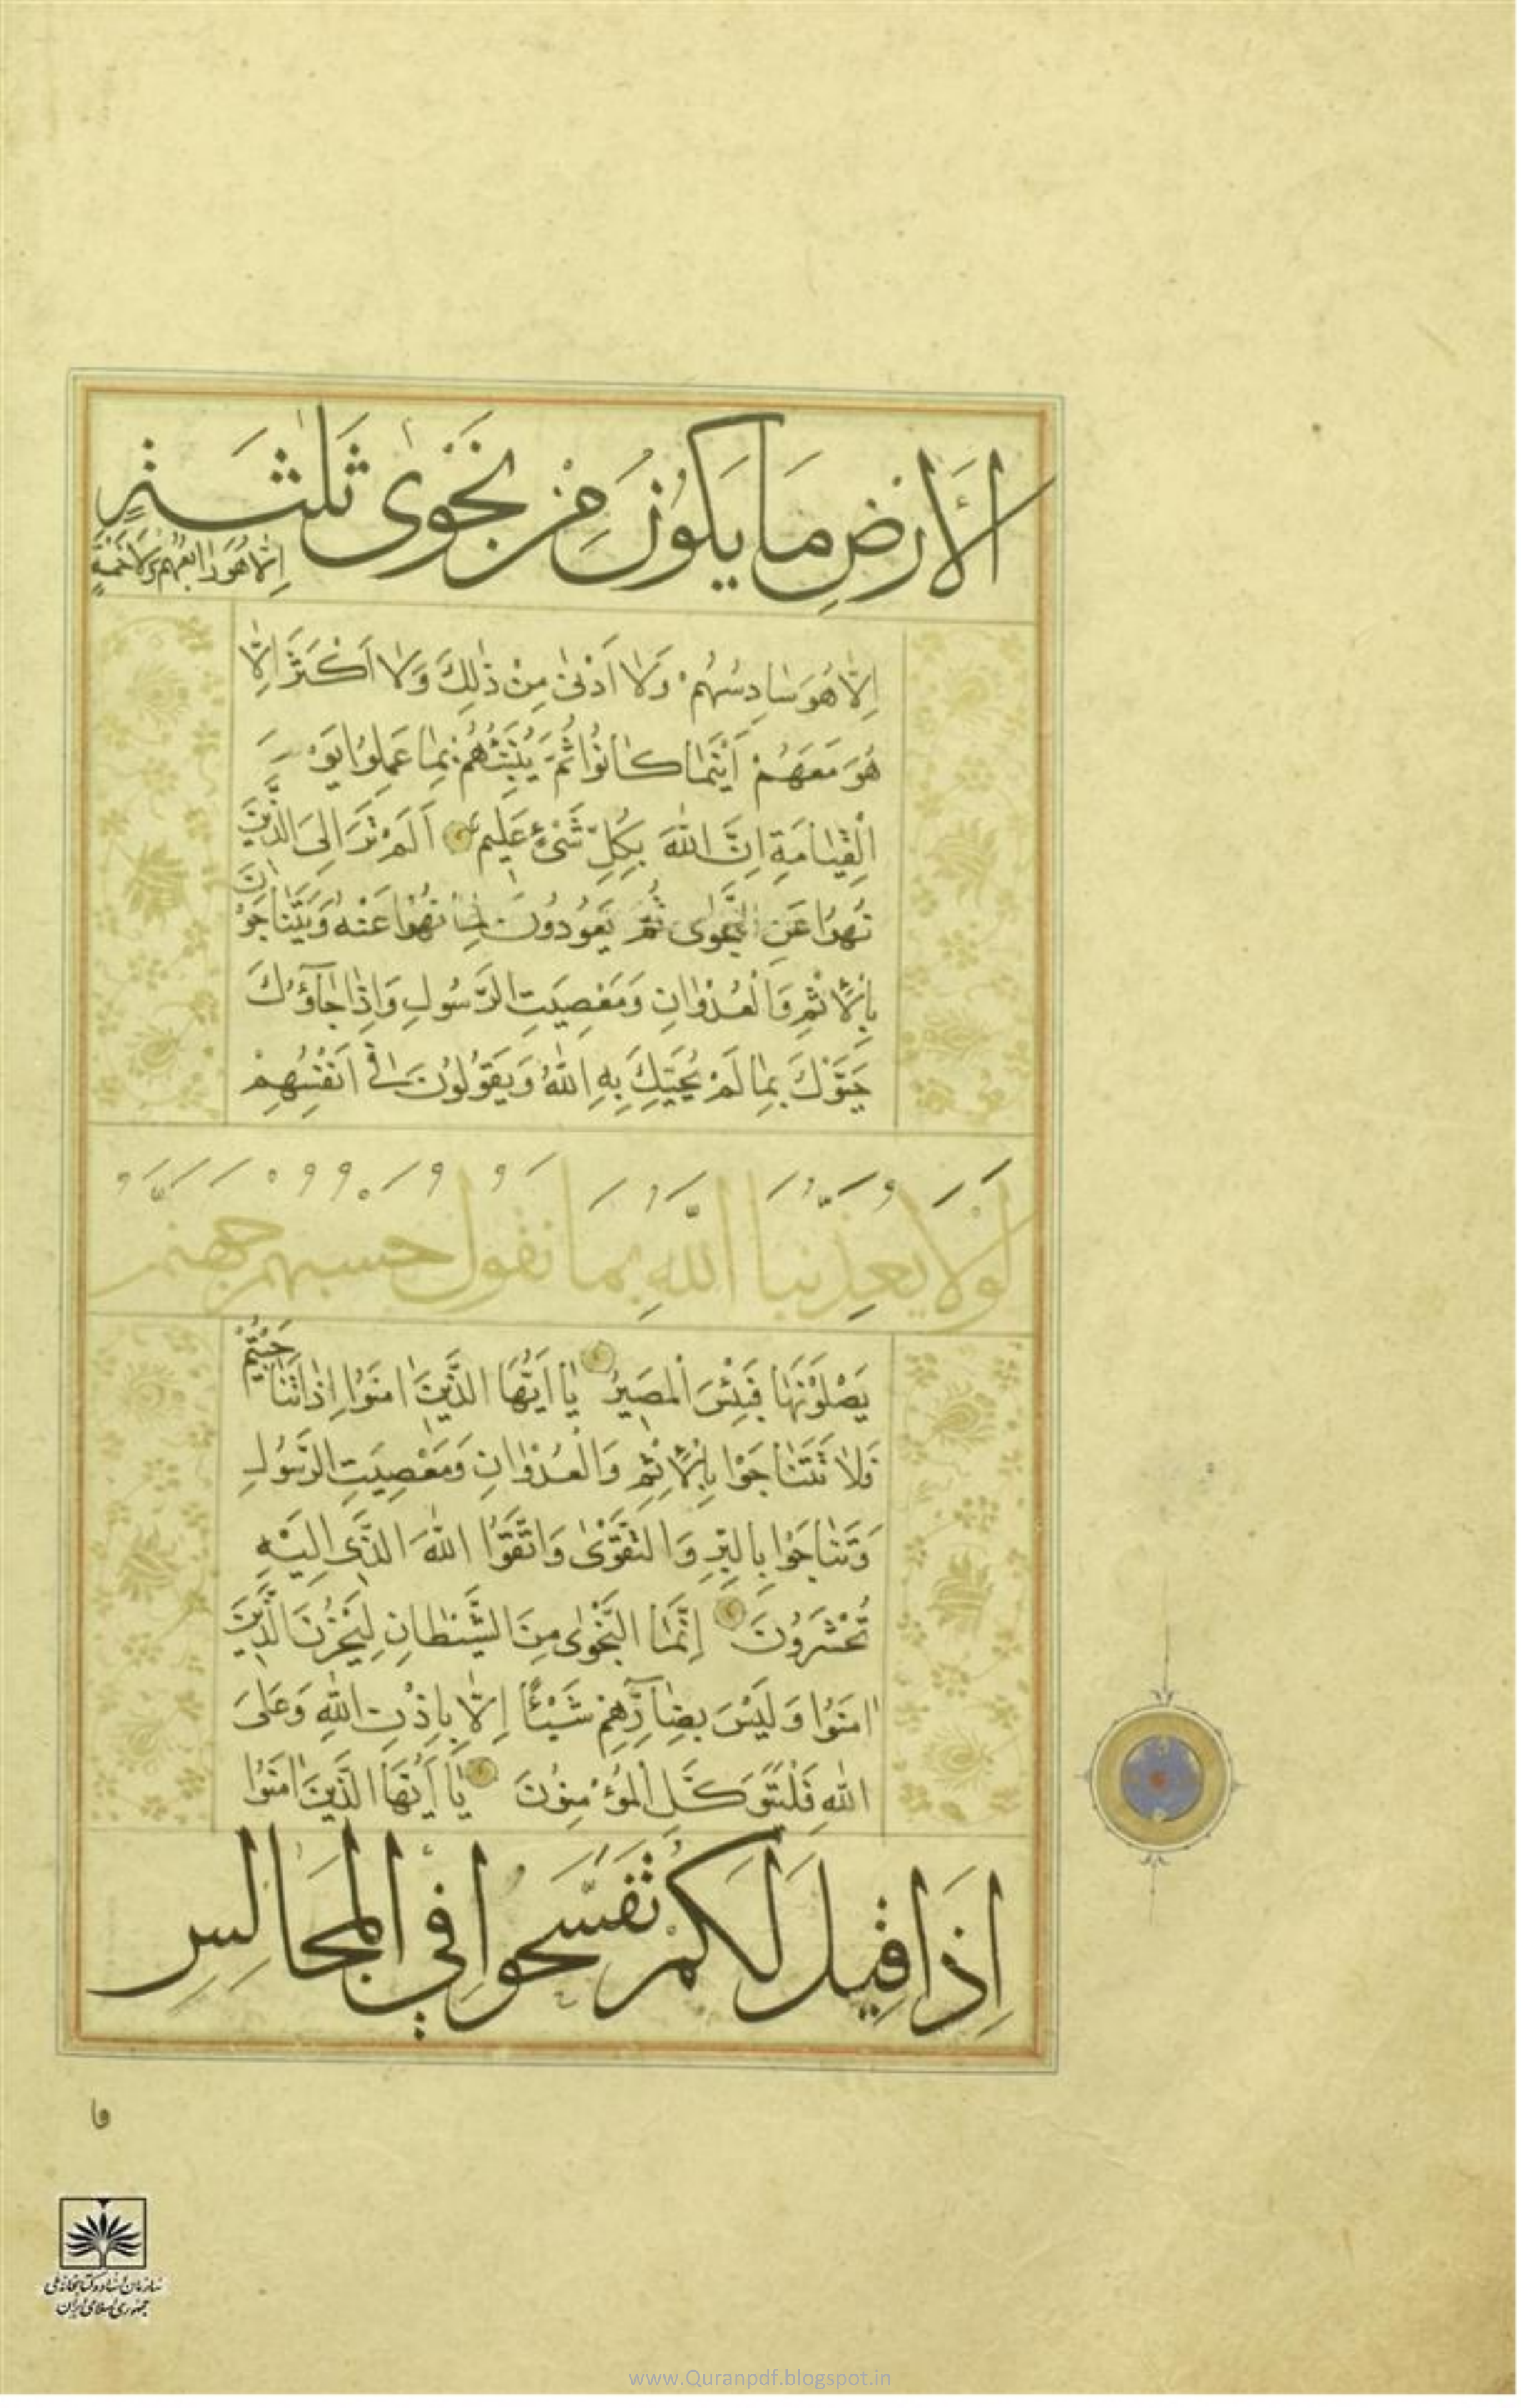 الأَرضِ مَا يَكُونُ مِنْ نَجْوىٰ ثَلٰثَةٍ
اِلّٰا هُوَ رَابِعُهُم وَلَا خَمْسَةٍ
اِلّٰا هُوَ سٰادِسُهُمْ وَلٰا اَدْنٰى مِنْ ذٰلِكَ وَلٰا اَكْثَرَ اِلّٰا
هُوَ مَعَهُمْ اَيْنَمٰا كٰانُوا ثُمَّ يُنَبِّئُهُمْ بِمٰا عَمِلُوا يَوْمَ
الْقِيٰامَةِ اِنَّ اللّٰهَ بِكُلِّ شَىْءٍ عَلِيمٌ اَلَمْ تَرَ اِلَى الَّذِينَ
نُهُوا عَنِ النَّجْوٰى ثُمَّ يَعُودُونَ لِمٰا نُهُوا عَنْهُ وَيَتَنٰاجَوْنَ
بِالْاِثْمِ وَالْعُدْوٰانِ وَمَعْصِيَتِ الرَّسُولِ وَاِذٰا جٰآؤُكَ
حَيَّوْكَ بِمٰا لَمْ يُحَيِّكَ بِهِ اللّٰهُ وَيَقُولُونَ فٖى اَنْفُسِهِمْ
لَوْلَا يُعَذِّبُنَا اللّٰهُ بِمَا نَقُولُ حَسْبُهُمْ جَهَنَّمُ
يَصْلَوْنَهٰا فَبِئْسَ الْمَصِيرُ يٰا اَيُّهَا الَّذِينَ اٰمَنُوا اِذٰا تَنٰاجَيْتُمْ
فَلٰا تَتَنٰاجَوْا بِالْاِثْمِ وَالْعُدْوٰانِ وَمَعْصِيَتِ الرَّسُولِ
وَتَنٰاجَوْا بِالْبِرِّ وَالتَّقْوٰى وَاتَّقُوا اللّٰهَ الَّذِى اِلَيْهِ
تُحْشَرُونَ اِنَّمَا النَّجْوٰى مِنَ الشَّيْطٰانِ لِيَحْزُنَ الَّذِينَ
اٰمَنُوا وَلَيْسَ بِضٰآرِّهِمْ شَيْئًا اِلّٰا بِاِذْنِ اللّٰهِ وَعَلَى
اللّٰهِ فَلْيَتَوَكَّلِ الْمُؤْمِنُونَ يٰا اَيُّهَا الَّذِينَ اٰمَنُوا
اِذَا قِيلَ لَكُمْ تَفَسَّحُوا فِي الْمَجَالِسِ
فا
سازمان اسناد و کتابخانه ملی
جمهوری اسلامی ایران
www.Quranpdf.blogspot.in